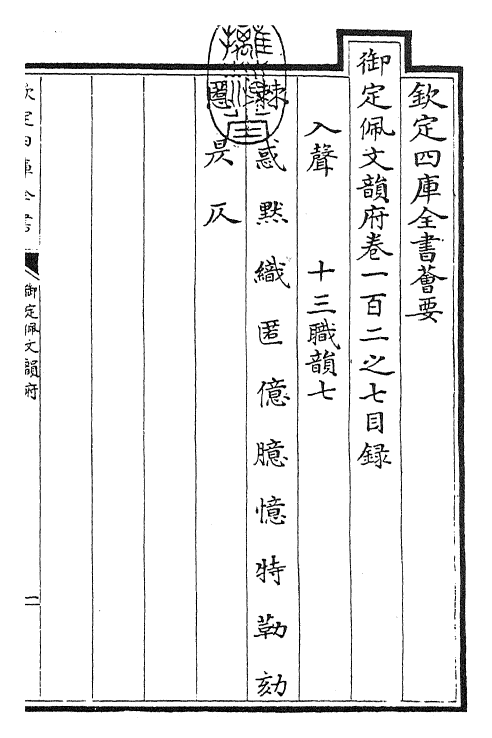 欽定四庫全書薈要
御定佩文韻府卷一百二之七目錄
入聲 十三職韻七
棘惑默織匿億臆憶特勒劾
昃仄
欽定四庫全書
御定佩文韻府